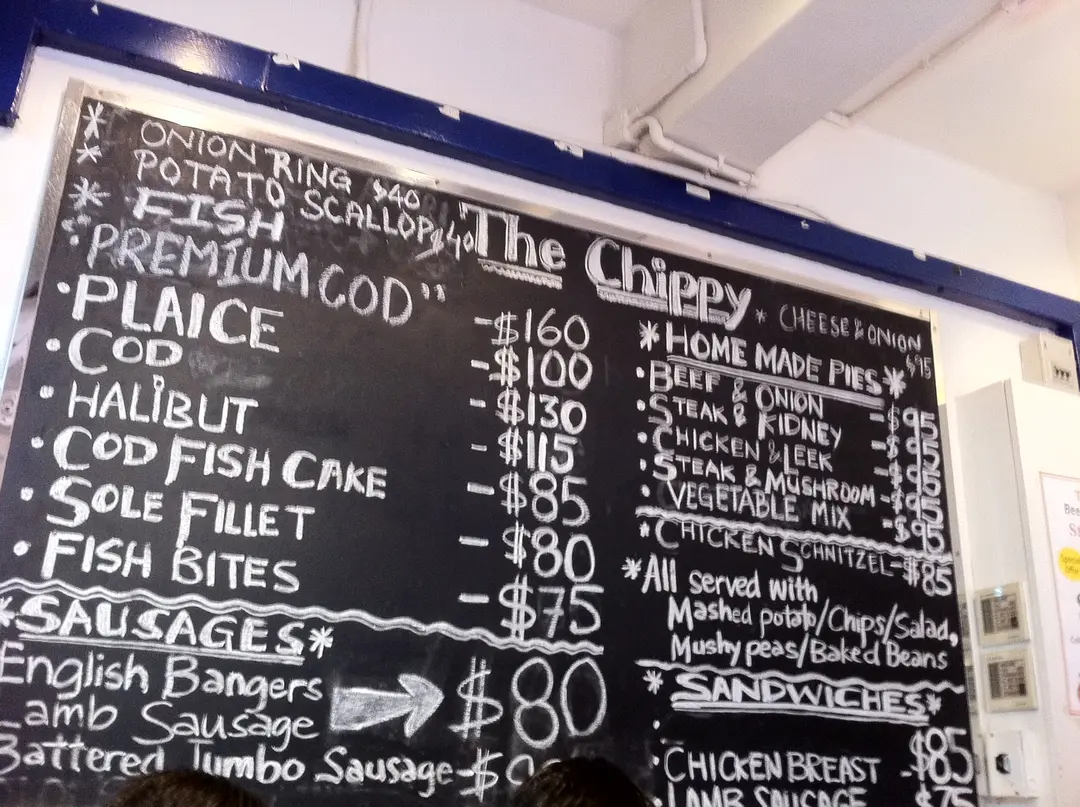 * ONION RING $40
* POTATO SCALLOP $40
* FISH
"PREMIUM COD" - $160
• PLAICE - $100
• COD - $130
• HALIBUT - $115
• COD FISH CAKE - $85
• SOLE FILLET - $80
• FISH BITES - $75
*SAUSAGES*
English Bangers
Lamb Sausage
$80
Battered Jumbo Sausage - $
The Chippy
* CHEESE & ONION $95
*HOME MADE PIES*
• BEEF & ONION - $95
• STEAK & KIDNEY - $95
• CHICKEN & LEEK - $95
• STEAK & MUSHROOM - $95
• VEGETABLE MIX - $95
*CHICKEN SCHNITZEL - $85
*All served with
Mashed potato/Chips/Salad,
Mushy peas/Baked Beans
*SANDWICHES*
$85
• CHICKEN BREAST - $85
LAMB SAUSAGE $75